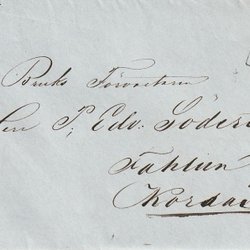 Bruks Förvaltaren
Herr P. Edv. Söder
Fahlun
Korså